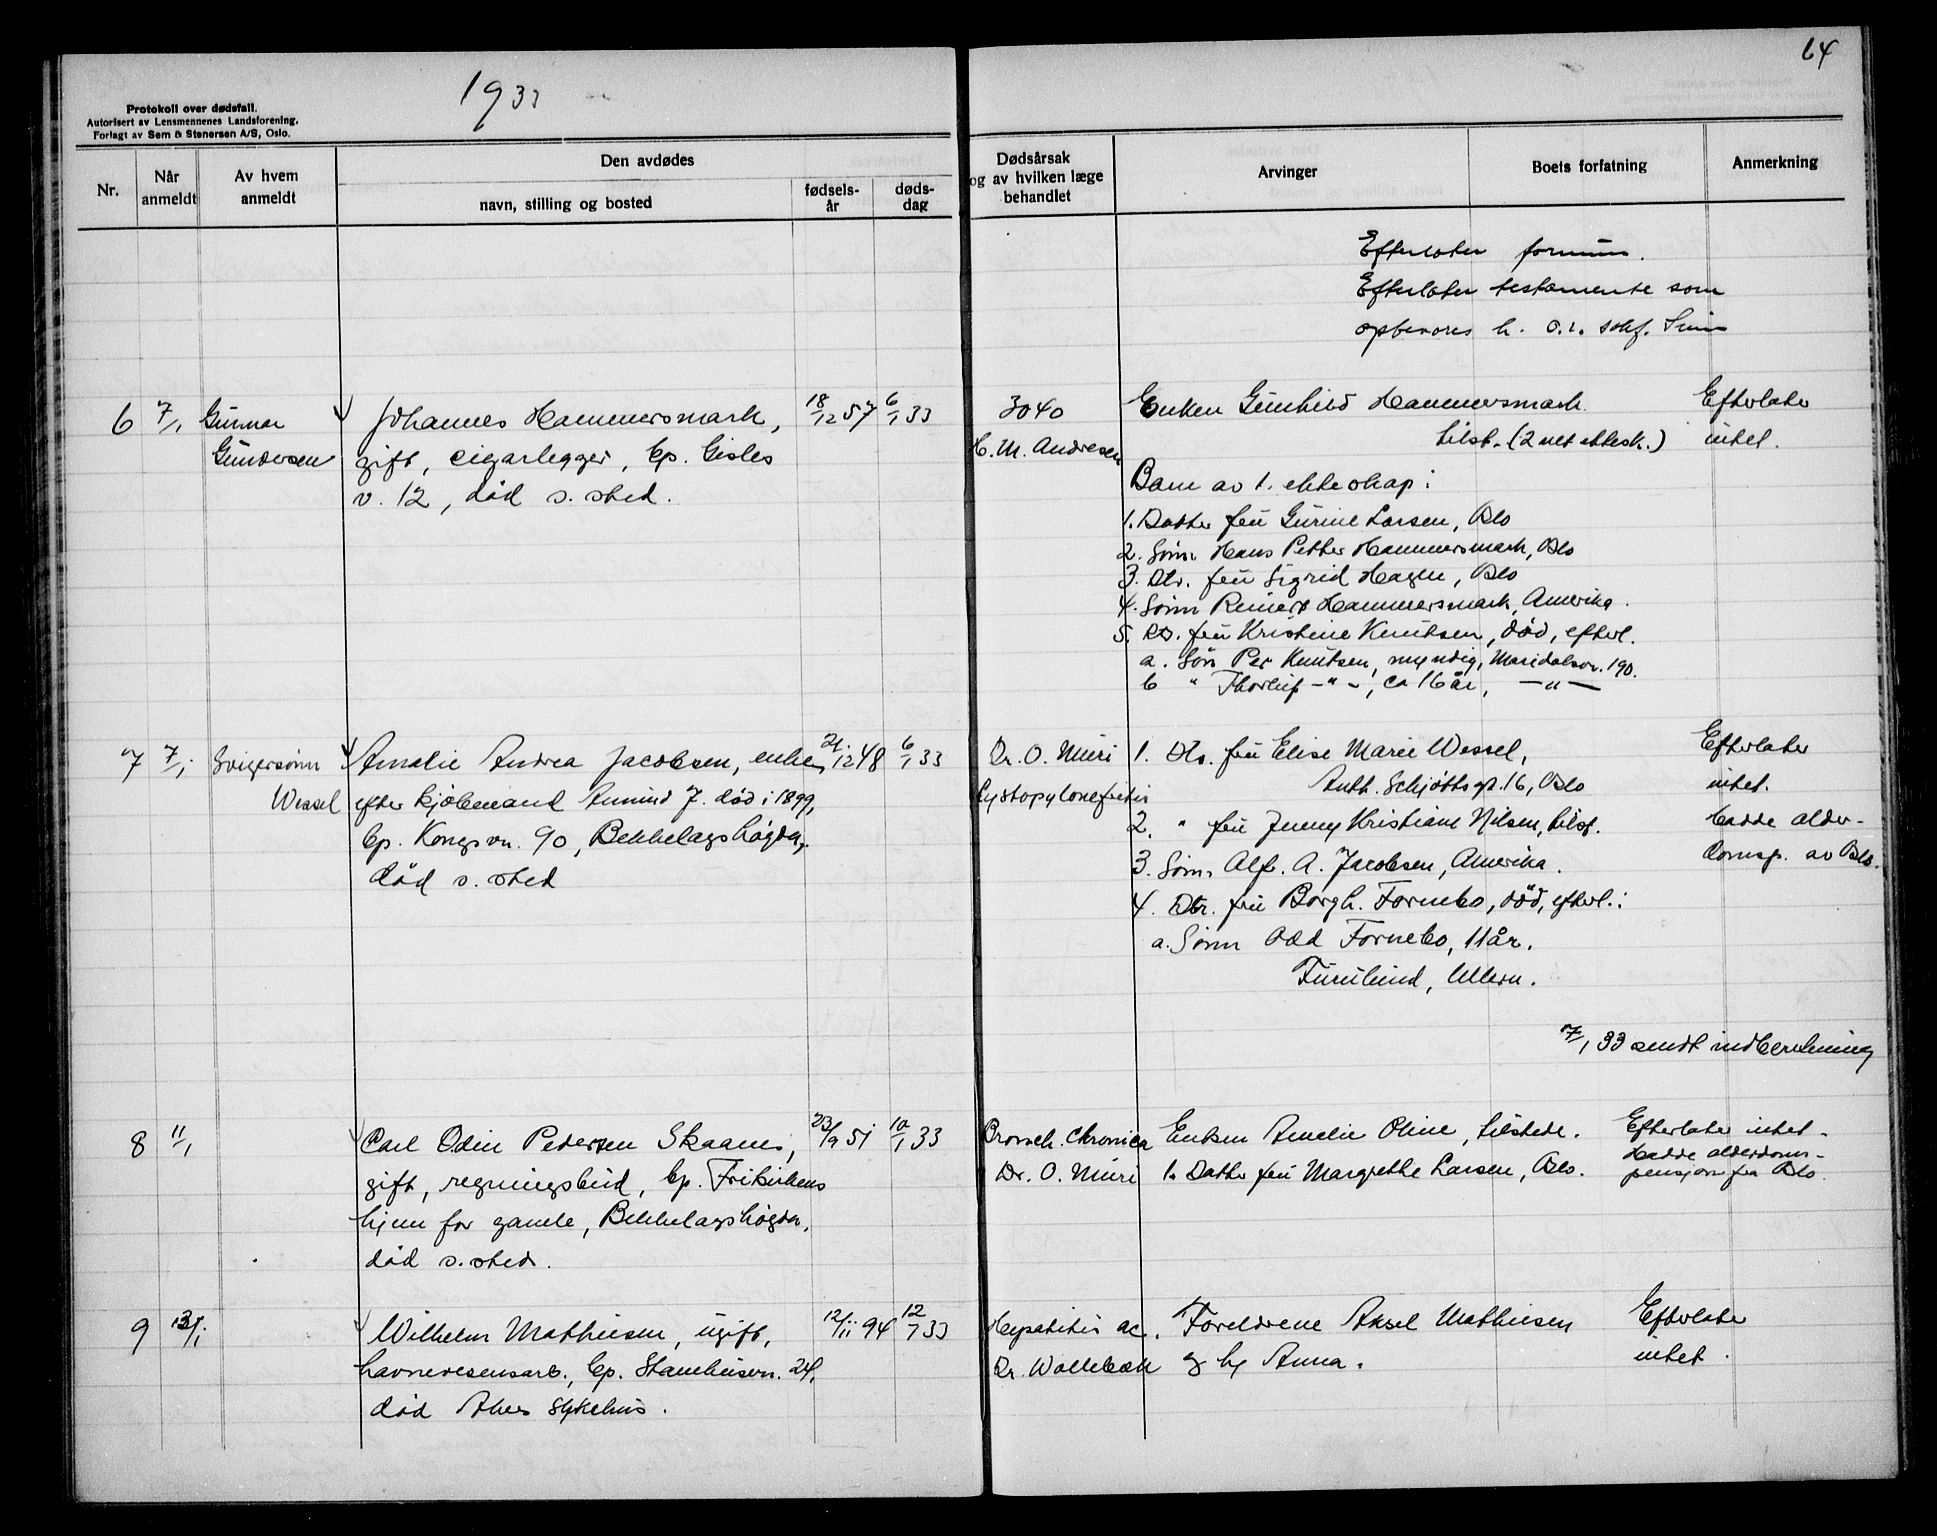 64
1933
Protokoll over dødsfall.
Autorisert av Lensmennenes Landsforening.
Forlagt av Sem & Stenersen A/S, Oslo.
Nr.
Når anmeldt
Av hvem anmeldt
Den avdødes
navn, stilling og bosted
fødsels-år
døds-dag
Dødsårsak og av hvilken læge behandlet
Arvinger
Boets forfatning
Anmerkning
Efterlater formue.
Efterlater testamente som
opbevares h. o.r. sakf.
6 7/1 Gunnar Gundersen
Johannes Hammersmark,
gift, cigarlegger, bp. Gisles
v. 12, död s. sted.
18/12 57 6/1 33
3040
H. M. Andresen
Enken Gunhild Hammersmark
tilst. (2net ektesk.)
Efterlater
intet.
Barn av 1. ekteskap:
1. Datter fru Gurine Larsen, Oslo
2. Sönn Hans Petter Hammersmark, Oslo
3. Dtr. fru Sigrid Hagen, Oslo
4. Sönn Reinert Hammersmark, Amerika.
5. Dtr. fru Kristine Knutsen, död, efterl.
a. Sön Per Knutsen, myndig, Maridalsv. 190.
b " Thorleif -"-, ca 16 år, -"-
7 7/1 Svigersönn Wessel
Amalie Andrea Jacobsen, enke
efter kjöbmand Amund J. död i 1899,
bp. Kongsvn. 90, Bekkelagshögda,
död s. sted
21/12 48 6/1 33
Dr. O. Muri
Cystopylonefritis
1. Dtr. fru Elise Marie Wessel,
Anth. Schjöttsgt. 16, Oslo
2. " fru Jenny Kristiane Nilsen, tilst.
3. Sönn Alf. A. Jacobsen, Amerika.
4. Dtr. fru Borgh. Fornebo, död, efterl.:
a. Sönn Odd Fornebo, 11 år.
Furulund, Ullern.
Efterlater
intet.
Hadde alder-
domsp. av Oslo.
7/1 33 sendt indberetning
8 11/1
Carl Odin Pedersen Skaanes,
gift, regningsbud, bp. Frikirkens
hjem for gamle, Bekkelagshögda,
död s. sted.
23/9 51 10/1 33
Bronch. Chronica
Dr. O. Muri
Enken Amalie Oline, tilstede.
1. Datter fru Margrethe Larsen, Oslo.
Efterlater intet.
Hadde alderdoms-
pensjon fra Oslo.
9 13/1
Wilhelm Mathiesen, ugift,
havnevesensarb., bp. Stamhusvn. 24,
död Akers sykehus.
12/11 94 12/1 33
Hepatitis ac.
Dr. Wollebæk
Foreldrene Aksel Mathiesen
og h. Anna.
Efterlater
intet.